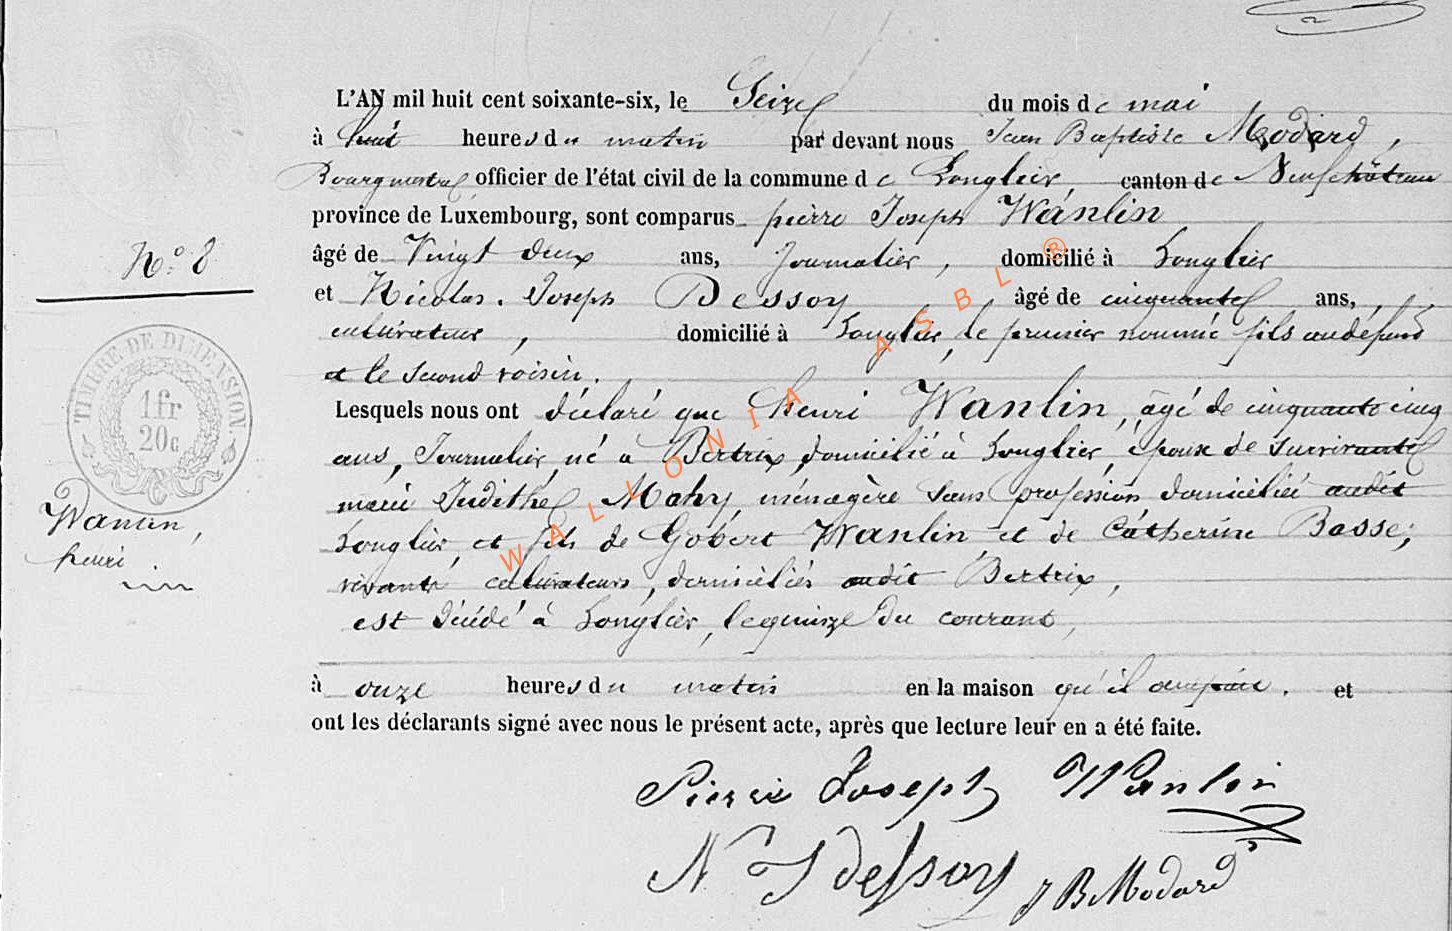 L'AN mil huit cent soixante-six, le Seize du mois de mai
à huit heures du matin par devant nous Jean Baptiste Modard,
Bourgmestre officier de l'état civil de la commune de Longlier, canton de Neufchâteau
province de Luxembourg, sont comparus pièrre Joseph Wanlin
N.° 8
âgé de Vingt deux ans, Journalier, domicilié à Longlier
et Nicolas Joseph Dessoy âgé de cinquante ans,
cultivateur, domicilié à Longlier, le premier nommé fils au défunt
et le second voisin.
TIMBRE DE DIMENSION
1 fr
20c
Lesquels nous ont déclaré que henri Wanlin, âgé de cinquante cinq
ans, Journalier, né à Bertrix, domicilié à Longlier, époux de survivante
marie Judithe Mahy, ménagère sans profession domiciliée audit
Longlier, et fils de Gobert Wanlin, et de Catherine Basse;
vivants cultivateurs, domiciliés audit Bertrix,
est décédé à Longlier, le quinze du courant,
Wanlin,
henri
à onze heures du matin en la maison qu'il occupait. et
ont les déclarants signé avec nous le présent acte, après que lecture leur en a été faite.
Pierre Joseph Wanlin
N J dessoy J B Modard
WALLONIA ASBL ®